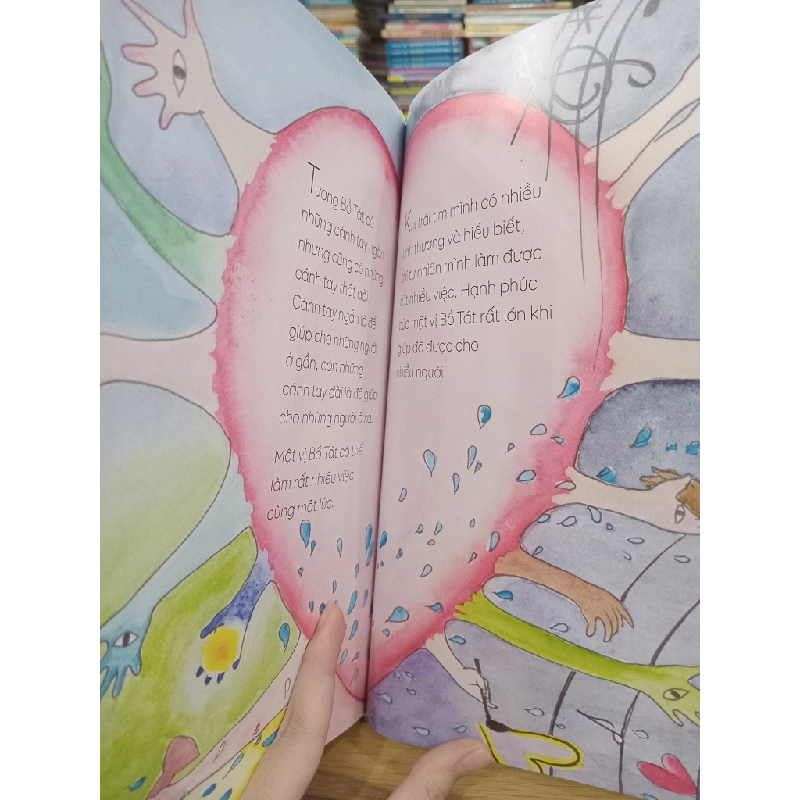 Tượng Bồ Tát có
những cánh tay ngắn
nhưng cũng có những
cánh tay thật dài.
Cánh tay ngắn là để
giúp cho những người
ở gần, còn những
cánh tay dài là để giúp
cho những người ở xa.
Một vị Bồ Tát có thể
làm rất nhiều việc
cùng một lúc.
Khi trái tim mình có nhiều
tình thương và hiểu biết,
thì tự nhiên mình làm được
rất nhiều việc. Hạnh phúc
của một vị Bồ Tát rất lớn khi
giúp đỡ được cho
nhiều người.